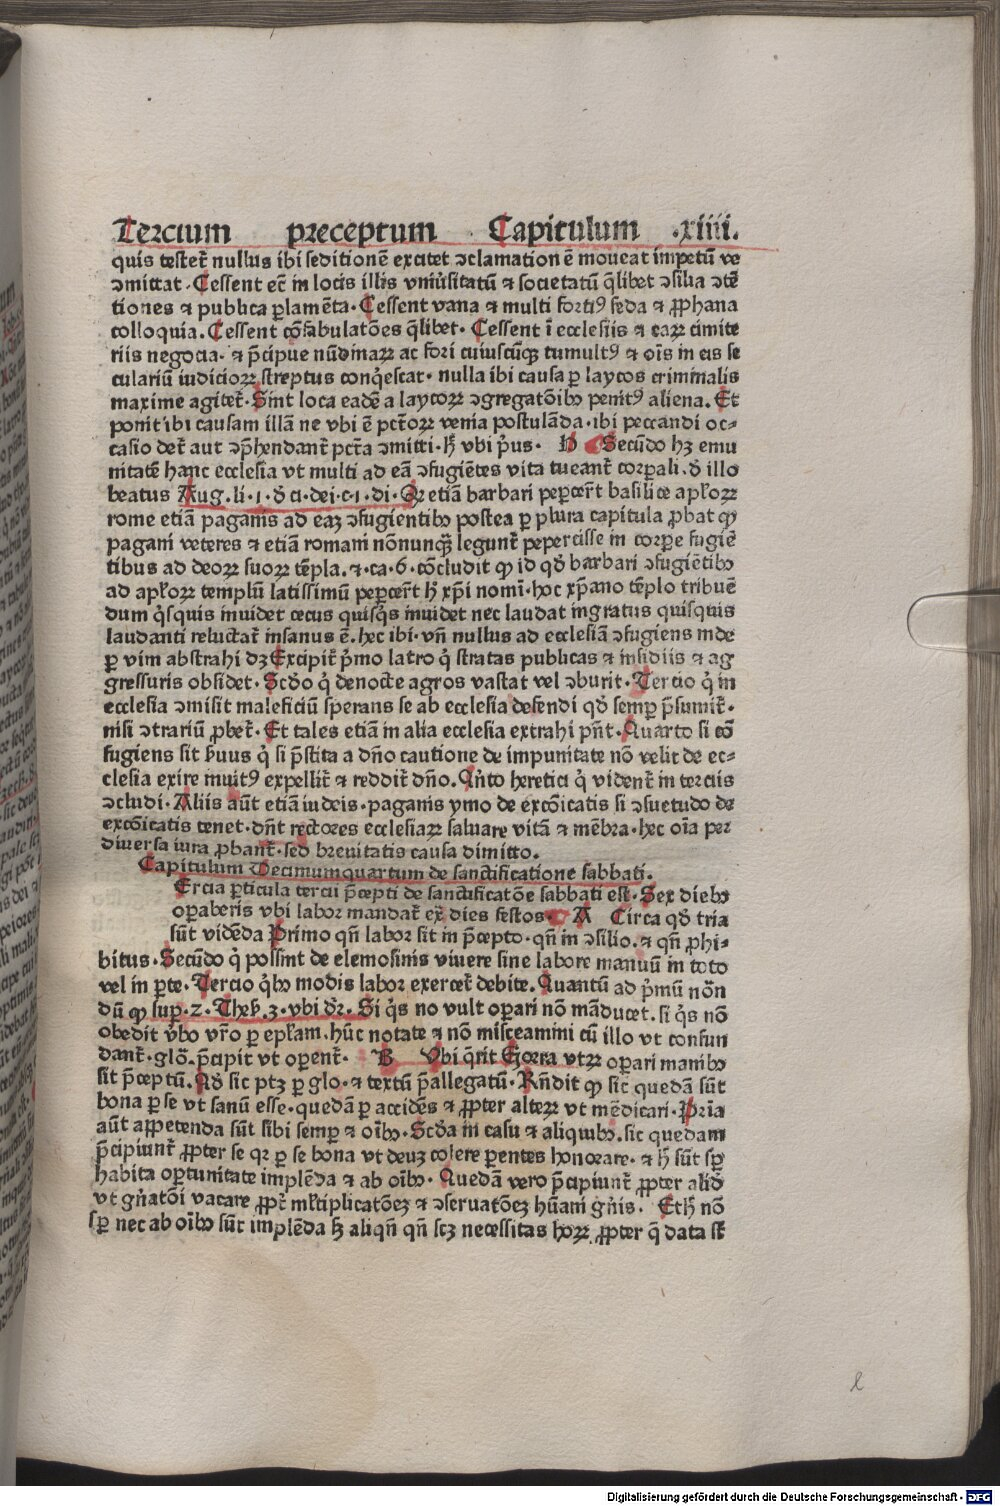 Tercium preceptum Capitulum .xiiii.
quis testet᷑ nullus ibi seditionē excitet ↄclamationē moueat impetū ve
ↄmittat . Cessent ec̄ in locis illis vniũsitatū ⁊ societatū q̄libet ↄsilia ↄtē
tiones ⁊ publica ꝑlamēta . Cessent vana ⁊ multi fortiꝰ feda ⁊ ꝓphana
colloquia . Cessent cōfabulatōes q̄libet . Cessent ī ecclesiis ⁊ eaꝝ cimite
riis negocia . ⁊ p̄cipue nūdinaꝝ ac fori cuiuscūqꝫ tumultꝰ ⁊ oīs in eis se
culariū iudicioꝝ streptus conq̇escat . nulla ibi causa ꝑ laycos criminalis
maxime agitet᷑ . Sint loca eadē a laycoꝝ ↄgregatōibꝫ penitꝰ aliena . Et
ponit ibi causam illā ne vbi ē pct̄oꝝ venia postulāda . ibi peccandi oc-
casio det᷑ aut ↄp̄hendant᷑ pct̄a ↄmitti . hꝭ vbi ṗus . D Secūdo hꝫ emu
nitatē hanc ecclesia vt multi ad eā ↄfugiētes vita tueant᷑ corꝑali . d̄ illo
beatus Aug. li . 1 . d̄ ci . dei . c . 1 . di . Qꝛ etiā barbari peꝑcer̄t basilice apl̄oꝝ
rome etiā paganis ad eaꝫ ↄfugientibꝫ postea ꝑ plura capitula ꝓbat ꝙ
pagani veteres ⁊ etiā romani nōnunqꝫ̄ legunt᷑ pepercisse in corꝑe fugiē
tibus ad deoꝝ suoꝝ tēpla . ⁊ . ca . 6 . cōcludit ꝙ id qd̄ barbari ↄfugiētibꝫ
ad apl̄oꝝ templū latissimū peꝑcer̄t hꝭ xp̄i nomī . hoc xp̄iano tēplo tribuē
dum q̇squis inuidet cecus quisq̇s inuidet nec laudat ingratus quisquis
laudanti reluctat᷑ insanus ē . hec ibi . vn̄ nullus ad ecclesiā ↄfugiens inde
ꝑ vim abstrahi dꝫ Excipit᷑ ṗmo latro q̇ stratas publicas ⁊ insidiis ⁊ ag
gressuris obsidet . Scd̄o q̇ denocte agros vastat vel ↄburit . Tercio q̇ in
ecclesia ↄmisit maleficiū sperans se ab ecclesia defendi qd̄ semꝑ p̄sumit᷑ .
nisi ↄtrariū ꝓbet᷑ . Et tales etiā in alia ecclesia extrahi pn̄t . Quarto si cō
fugiens sit s̄uus q̇ si p̄stita a dn̄o cautione de impunitate nō velit de ec-
clesia exire inuitꝰ expellit᷑ ⁊ reddit᷑ dn̄o . Qn̄to heretici q̇ vident᷑ in terciis
ↄcludi . Aliis aūt etiā iudeis . paganis ymo de excōicatis si ↄsuetudo de
excōicatis tenet . dn̄t rectores ecclesiaꝝ saluare vitā ⁊ mēbra . hec oīa per
diuersa iura ꝓbant᷑ . sed breuitatis causa dimitto .
Capitulum Decimumquartum de sanctificatione sabbati .
Ercia ꝑticula tercii p̄cepti de sanctificatōe sabbati est . Sex diebꝫ
oꝑaberis vbi labor mandat᷑ ex̄ dies festos . A Circa qd̄ tria
sūt vidēda Primo qn̄ labor sit in p̄cepto . qn̄ in ↄsilio . ⁊ qn̄ ꝓhi-
bitus . Secūdo q̇ possint de elemosinis viuere sine labore manuū in toto
vel in ꝑte . Tercio q̇bꝫ modis labor exercet᷑ debite . Quantū ad ṗmū nōn
dū ꝙ suꝑ . 2 . Thes̄ . 3 . vbi dr̄ . Si q̇s no vult oꝑari nōn māducet . si q̇s nō
obedit v̄bo vr̄o ꝑ ep̄lam . hūc notate ⁊ nō misceamini cū illo vt confun
dant᷑ . glō . p̄cipit vt oꝑent᷑ . B Vbi q̄rit᷑ Ex̄cera vtꝝ oꝑari manibꝫ
sit p̄ceptū . Ad sic ptꝫ ꝑ glo . ⁊ textū p̄allegatū . Rn̄dit ꝙ sic quedā sūt
bona ꝑ se vt sanū esse . quedā ꝑ accidēs ⁊ ꝓpter alteꝝ vt mēdicari . Pr̄ia
aūt appetenda sūt sibi semꝑ ⁊ oībꝫ . Scd̄a in casu ⁊ aliquibꝫ . sic quedam
p̄cipiunt᷑ ꝓpter se qꝛ ꝑ se bona vt deuꝫ colere ꝑentes honorare . ⁊ hꝭ sūt sꝑ
habita oꝑtunitate implēda ⁊ ab oībꝫ . Quedā vero p̄cipiunt᷑ ꝓpter aliđ
vt gn̄atōi vacare ꝓpt᷑ ml̄tiplicatōeꝫ ⁊ ↄseruatōeꝫ hūani gn̄is . Et hꝭ nō
sꝑ nec ab oībꝫ sūt implēda sꝫ aliqn̄ qn̄ scꝫ necessitas hoꝝ ꝓpter q̄ data st̄
l
Digitalisierung gefördert durch die Deutsche Forschungsgemeinschaft - DFG